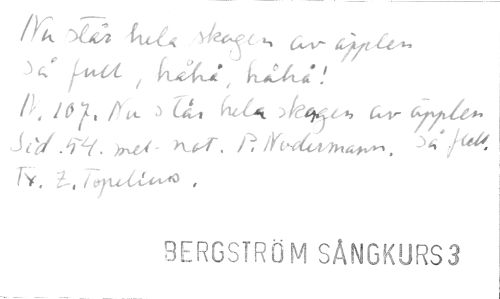 Nu står hela skogen av äpplen
så full, håhå, håhå!
N. 107. Nu står hela skogen av äpplen
Sid. 54. mel. not. P. Nodermann. så full.
Tx. Z. Topelius.
BERGSTRÖM SÅNGKURS 3